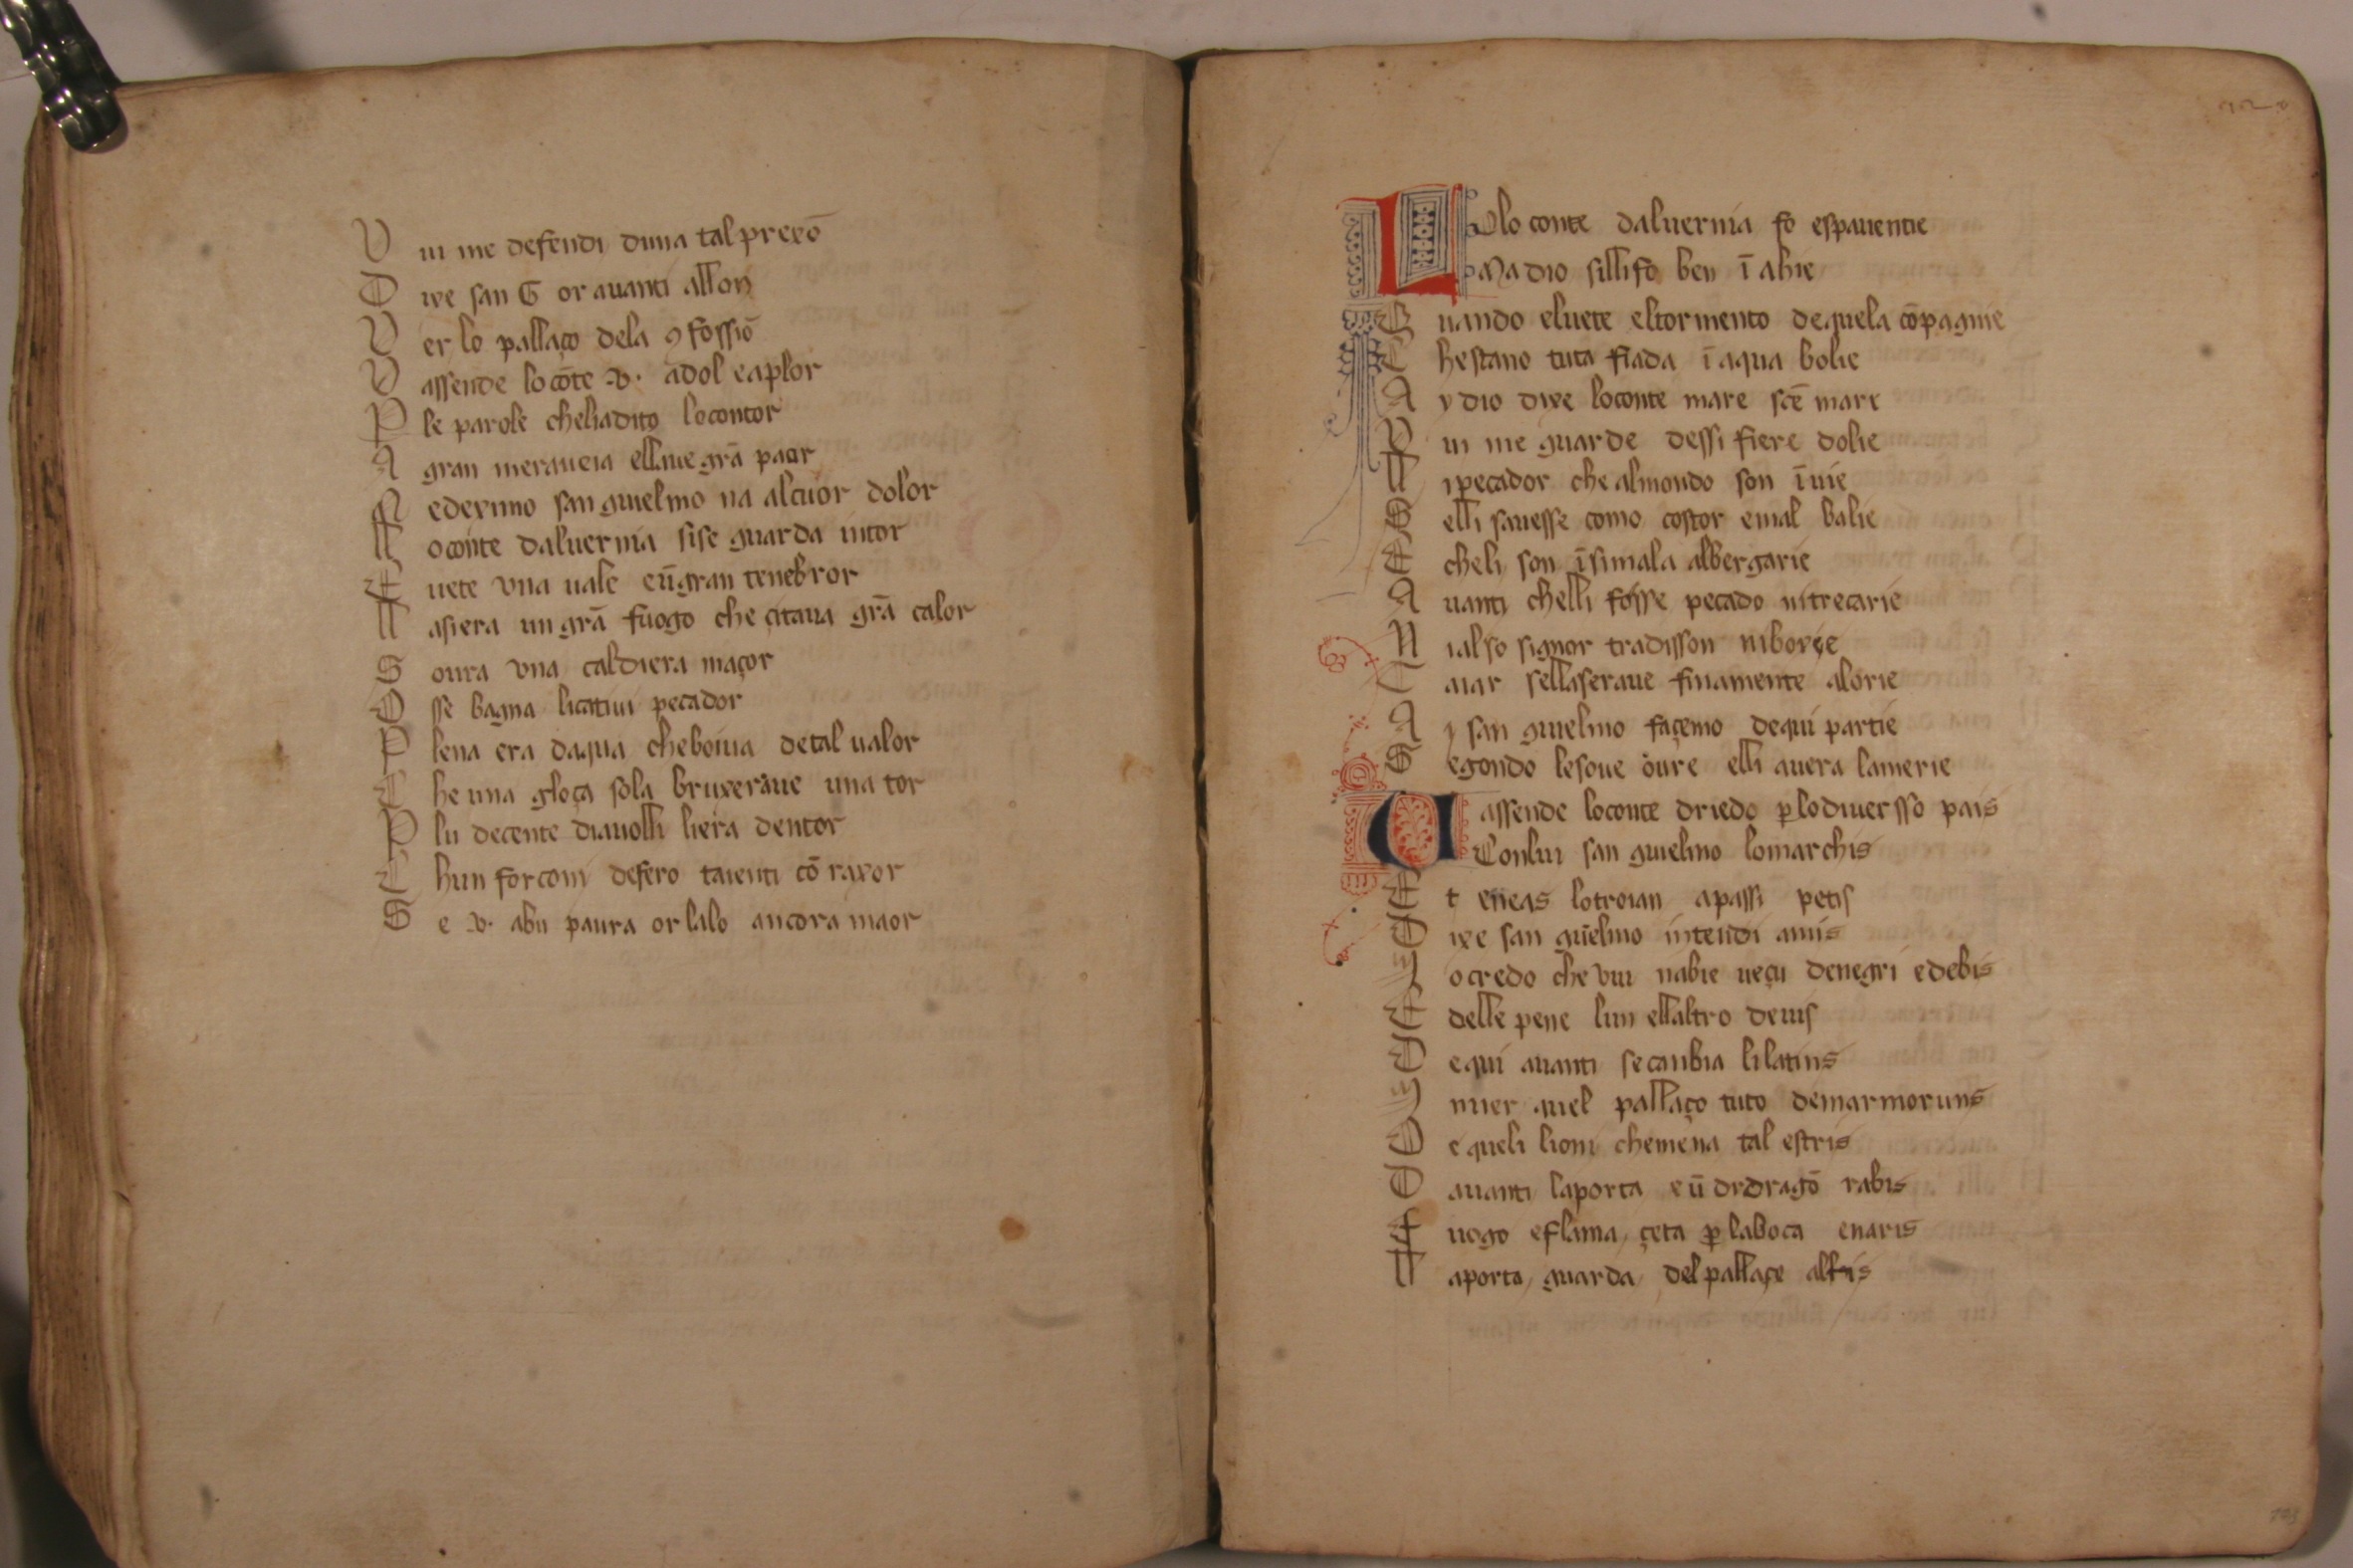 V ui me defendi duna tal prexō
D ixe san G or avanti allon
V er lo pallaço dela ꝯfossiō
V assende lo cōte .v. a dol e a plor
P le parole che li a dito lo contor
A gran meraveia ellave grā paor
N ede ximo san guielmo na al cuor dolor
L o conte dalvernia si se guarda intor
E vete vna vale e ū gran tenebror
L a si era un grā fuogo che çitava grā calor
S oura vna caldiera maçor
O sse bagna li cativi pecador
P lena era daqua che boiva de tal valor
C he una gloça sola bruxerave una tor
P lu de cente diavolli li era dentor
C hun forconi de fero taienti cō raxor
S e .v. abu paura or la lo ancora maor
L Olo conte dalvernia fo espaventie
Ma dio silli fo ben ī ahie
Q uando el vete el tormento de quela cōpagnie
C he stano tuta fiada ī aqua bolie
A y dio dixe lo conte mare scē marie
V ui me guarde dessi fiere dolie
L i pecador che al mondo son ī vie
S elli savesse como costor e mal balie
E che li son ī si mala albergarie
A vanti chelli fosse pecado ni trecarie
N i also signor tradisson ni borçe
C mar sella serave finamente alorie
A y san guielmo façemo de qui partie
S egondo le soue ovre elli avera la merie
V assende lo conte driedo p lo diversso pais
Con lui san guielmo lo marchis
E t eneas lo troian a passi petis
D ixe san guīelmo intendi amis
I o credo che vui nabie veçu de negri e de bis
E delle pene lun ellaltro devis
D e qui avanti se canbia li latins
I nver quel pallaço tuto de marmoruns
D e queli lioni che mena tal estris
D avanti la porta e ū drdragō rabis
F uogo e flama çeta p la boca e naris
L a porta guarda del pallaçe altis